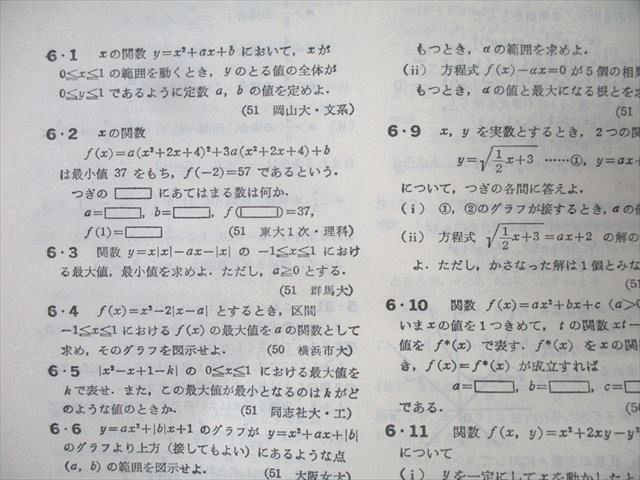 6・1　xの関数 y=x²+ax+b において，xが
0≦x≦1 の範囲を動くとき，yのとる値の全体が
0≦y≦1 であるように定数 a，b の値を定めよ．
(51　岡山大・文系)
6・2　xの関数
f(x)=a(x²+2x+4)²+3a(x²+2x+4)+b
は最小値 37 をもち，f(−2)=57 であるという．
つぎの □ にあてはまる数は何か．
a=□，b=□，f(□)=37,
f(1)=□　(51　東大1次・理科)
6・3　関数 y=x|x|−ax−|x| の −1≦x≦1 におけ
る最大値，最小値を求めよ．ただし，a≧0 とする．
(51　群馬大)
6・4　f(x)=x²−2|x−a| とするとき，区間
−1≦x≦1 における f(x) の最大値をaの関数として
求め，そのグラフを図示せよ．　(50　横浜市大)
6・5　|x²−x+1−k| の 0≦x≦1 における最大値を
kで表せ．また，この最大値が最小となるのはkがど
のような値のときか．　(51　同志社大・工)
6・6　y=ax²+|b|x+1 のグラフが y=x²+ax+|b|
のグラフより上方 (接してもよい) にあるような点
(a, b) の範囲を図示せよ．　(51　大阪女大)
もつとき，aの範囲を求めよ．
(ii)　方程式 f(x)−ax=0 が5個の相
もつとき，aの値と最大になる根とを
(51
6・9　x，y を実数とするとき，2つの関
y=√(1/2 x+3) ……①，y=ax+
について，つぎの各問に答えよ．
(i)　①，②のグラフが接するとき，aの値
(ii)　方程式 √(1/2 x+3)=ax+2 の解の
よ．ただし，かさなった解は1個とみな
(51
6・10　関数 f(x)=ax²+bx+c (a>0
いまxの値を1つきめて，tの関数 xt−
値を f*(x) で表す．f*(x) をxの関
き，f(x)=f*(x) が成立すれば
a=□，b=□，c=
である．　(50
6・11　関数 f(x, y)=x²+2xy−y²
について
(i)　yを一定にしてxを動かしたと